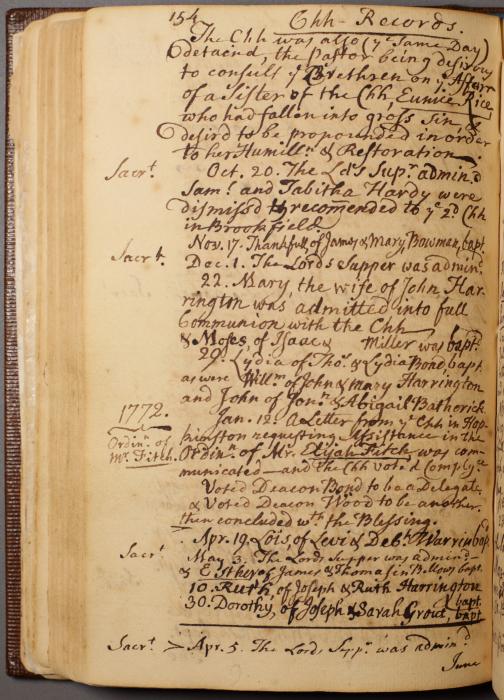 154 Chh Records.
The Chh was also (yͤ Same Day)
detaend, the Pastor being desirous
to consult yͤ Brethren on yͤ Affair
of a Sister of the Chh, Eunice Rice
who had fallen into gross Sin &
desird to be propounded in order
to her Humilln & Restoration.
Sacrt. Oct. 20. The Lds Supr. admind
Saml. and Tabitha Hardy were
dismissd & recommended to yͤ 2d Chh
in Brookfield.
Nov. 17. Thankfull, of James & Mary Bowman, bapt
Sacrt. Dec. 1. The Lords Supper was admind.
22. Mary, the wife of John Har-
rington was admitted into full
Communion with the Chh
& Moses, of Isaac & Miller was bapt.
29. Lydia of Thos. & Lydia Bond, bapt
as were Willm. of John & Mary Harrington
and John of Jonn. & Abigail Batherick
1772.
Jan. 12. A Letter from yͤ Chh in Hop-
Ordinn. of kinston requesting Assistance in the
Mr. Fitch. Ordinn. of Mr. Elijah Fitch was com-
municated—and the Chh voted complyce
Voted Deacon Bond to be a Delegate,
& Voted Deacon Wood to be another.
then concluded wth. the Blessing.
Apr. 19. Lois, of Levi & Debh. Warrin bap
Sacrt May 3. The Lords Supper was admind—
& Esther of James & Thomasin Bellows, bapt.
10. Ruth, of Joseph & Ruth Harrington
30. Dorothy, of Joseph & Sarah Grout, bapt
bapt
Sacrt > Apr. 5. The Lords Suppr. was admind
June